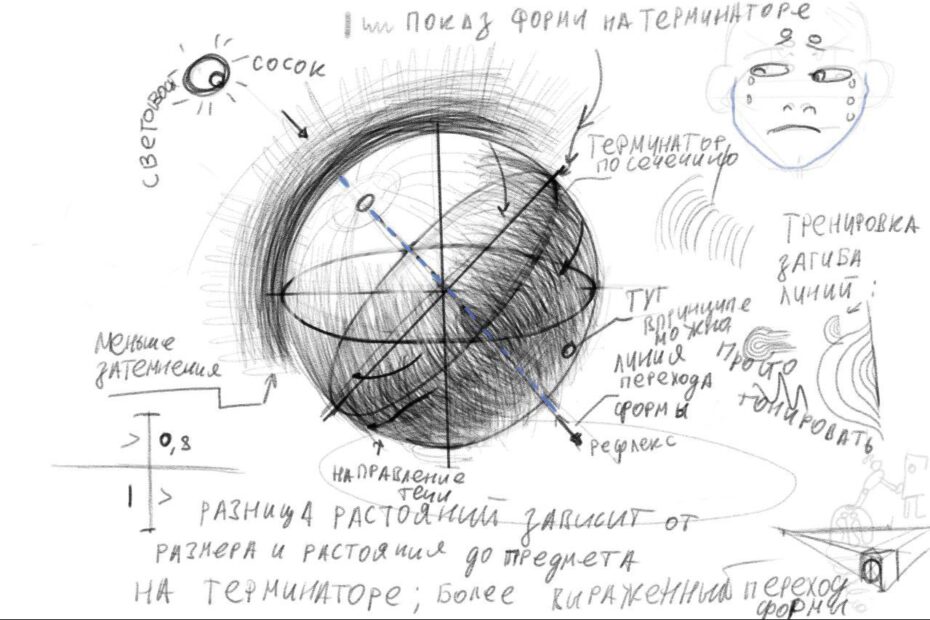 ПОКАЗ ФОРМИ НА ТЕРМИНАТОРЕ
СОСОК
СВЕТОВОСТ
ТЕРМИНАТОР
ПО СЕЧЕНИЮ
ТРЕНИРОВКА
ЗАГИБА
ЛИНИЙ:
ТУТ
В ПРИНЦИПЕ
МОЖНА
ПРОСТО
ТОНИРОВАТЬ
ЛИНИЯ
ПЕРЕХОДА
ФОРМЫ
РЕФЛЕКС
МЕНЬШЕ
ЗАТЕМНЕНИЯ
0,8
1
НАПРАВЛЕНИЕ
ТЕНИ
РАЗНИЦА РАСТОЯНИЙ ЗАВИСИТ ОТ
РАЗМЕРА И РАСТОЯНИЯ ДО ПРЕДМЕТА
НА ТЕРМИНАТОРЕ; БОЛЕЕ ВЫРАЖЕННЫЙ ПЕРЕХОД
ФОРМЫ